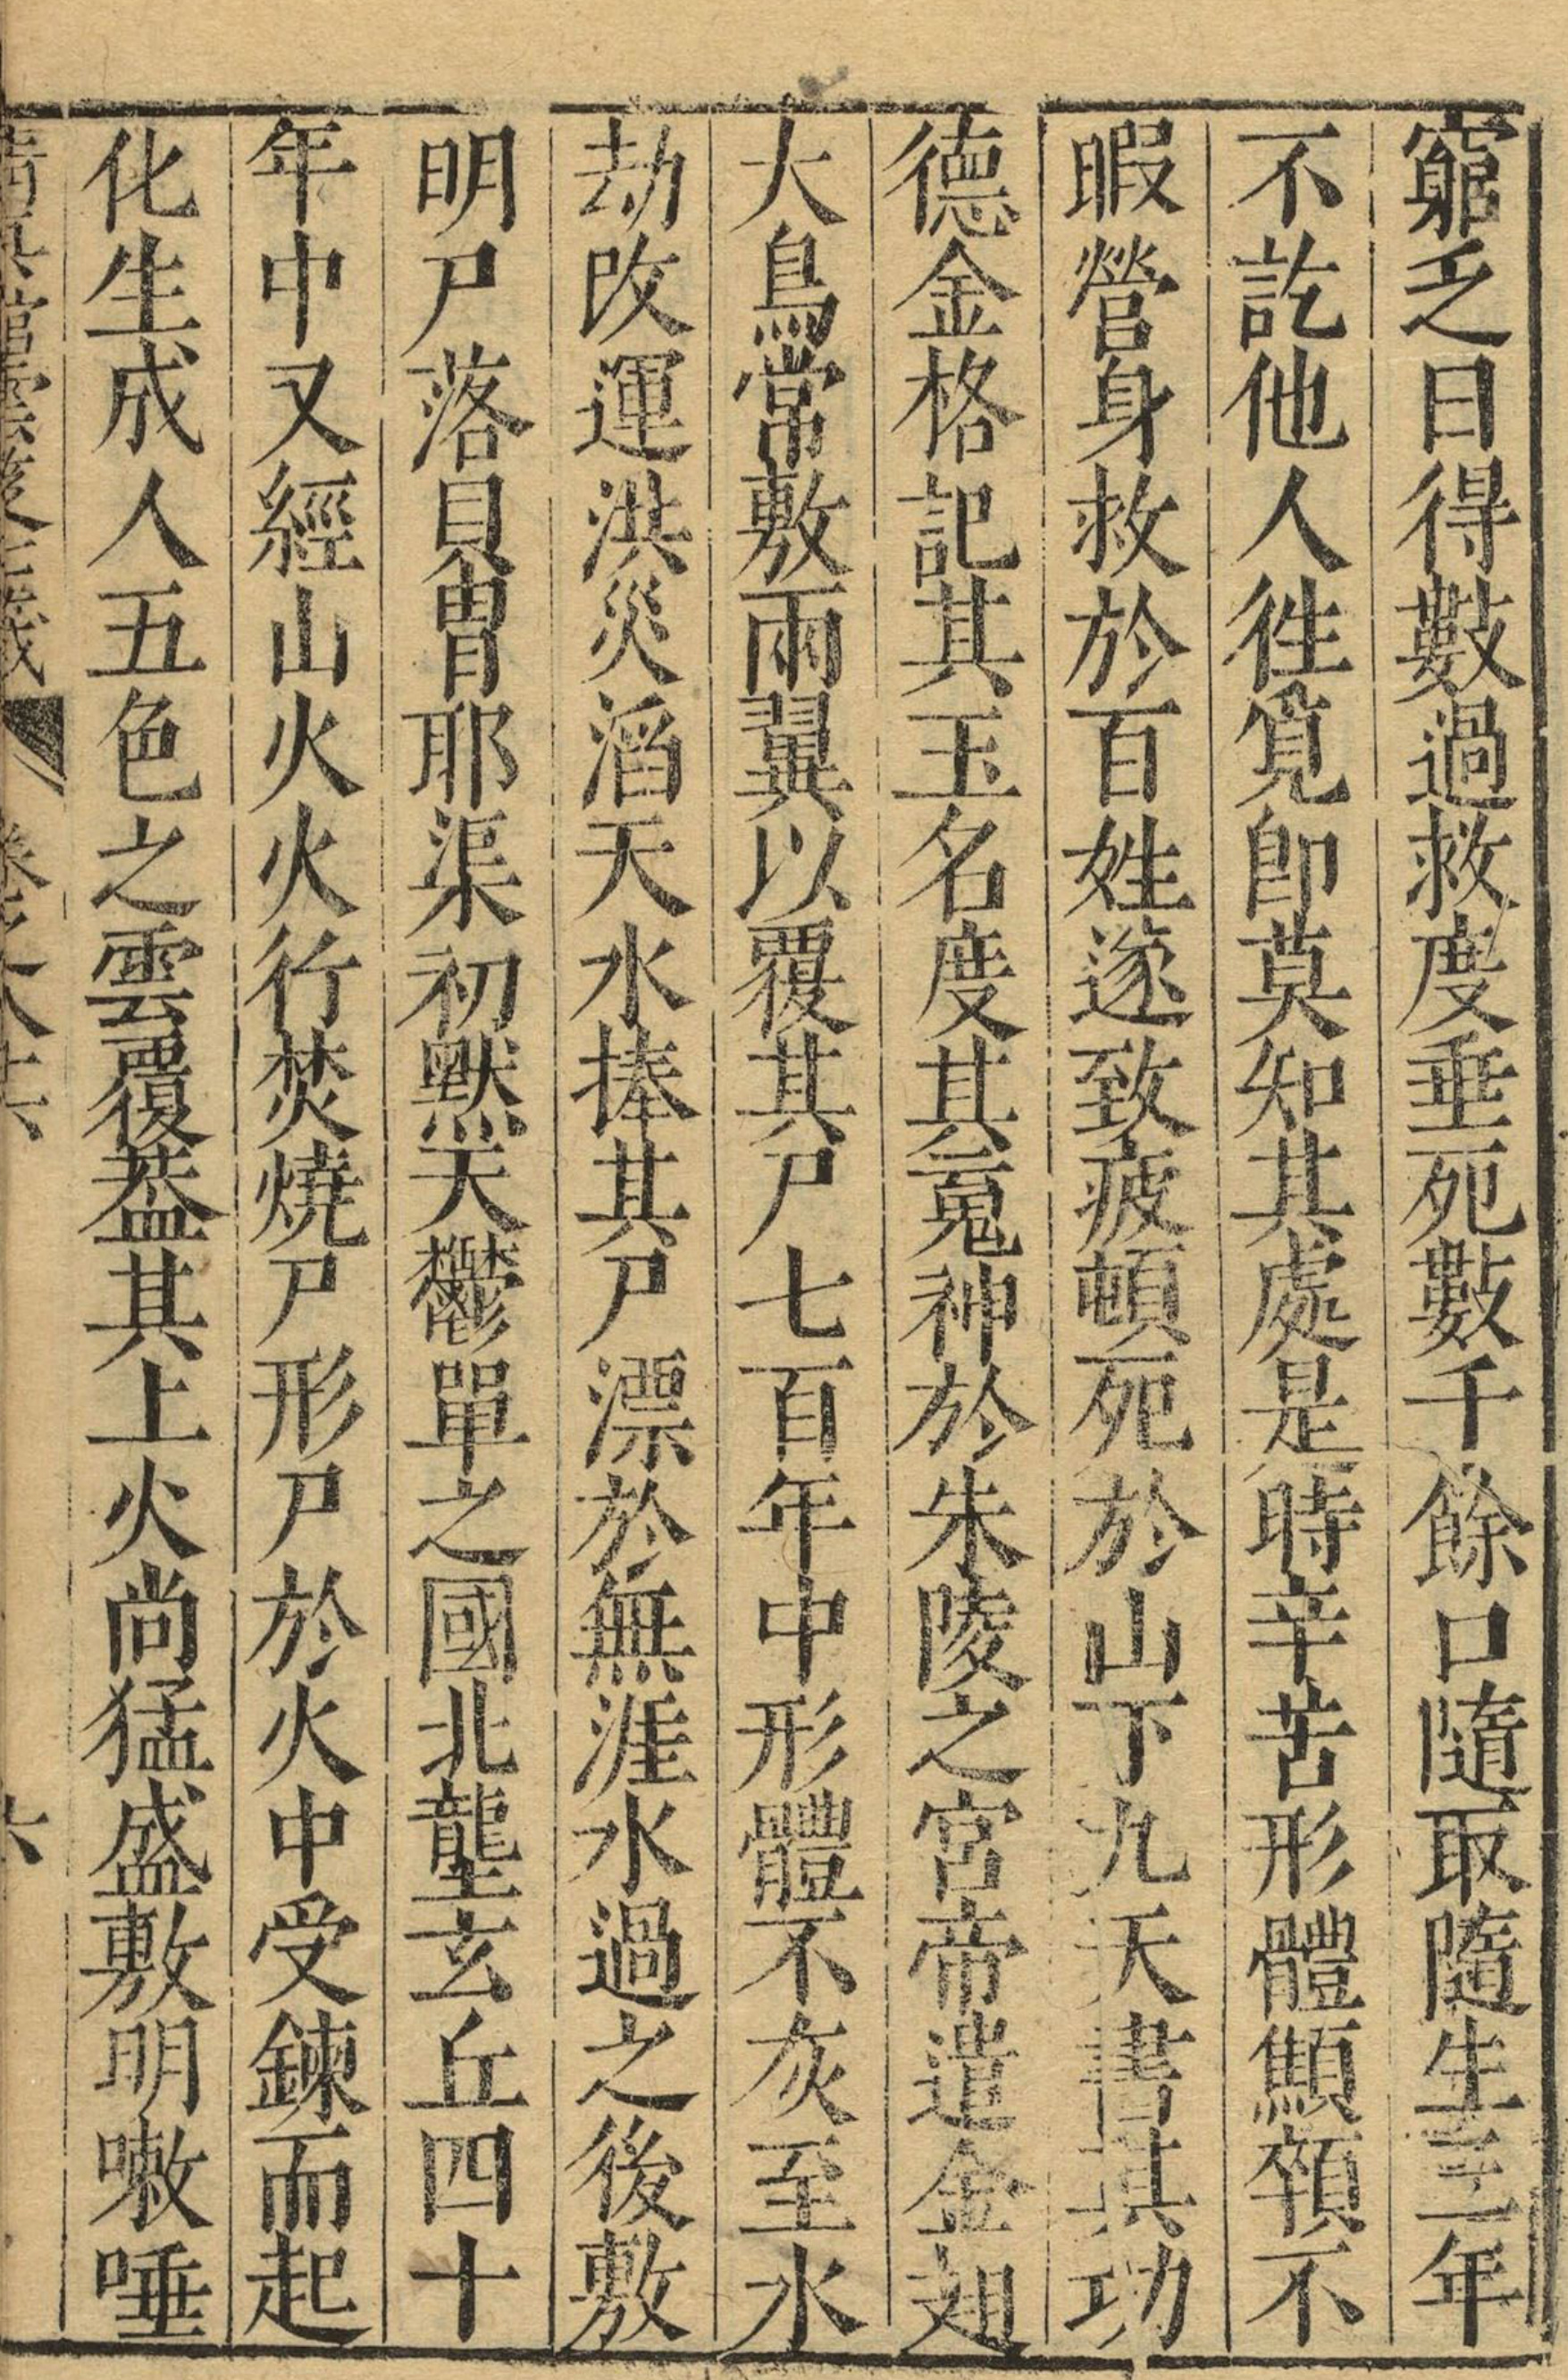 窮乏日得數過救度垂死數千餘口隨取隨生三年
不訖他人徃覓卽莫知其處是時辛苦形體顦顇不
暇營身救於百姓遂致疲頓死於山下九天書其功
德金格記其玉名度其䰟神於朱陵之宮帝遣金翅
大鳥常敷兩翼以覆其尸七百年中形體不灰至水
劫改運洪災滔天水捧其尸漂於無涯水過之後敷
明尸落貝胄耶渠初默天鬱單之國北壟玄丘四十
年中又經山火火行焚燒尸形尸於火中受鍊而起
化生成人五色之雲覆葢其上火尚猛盛敷明嗽唾
卷之
六